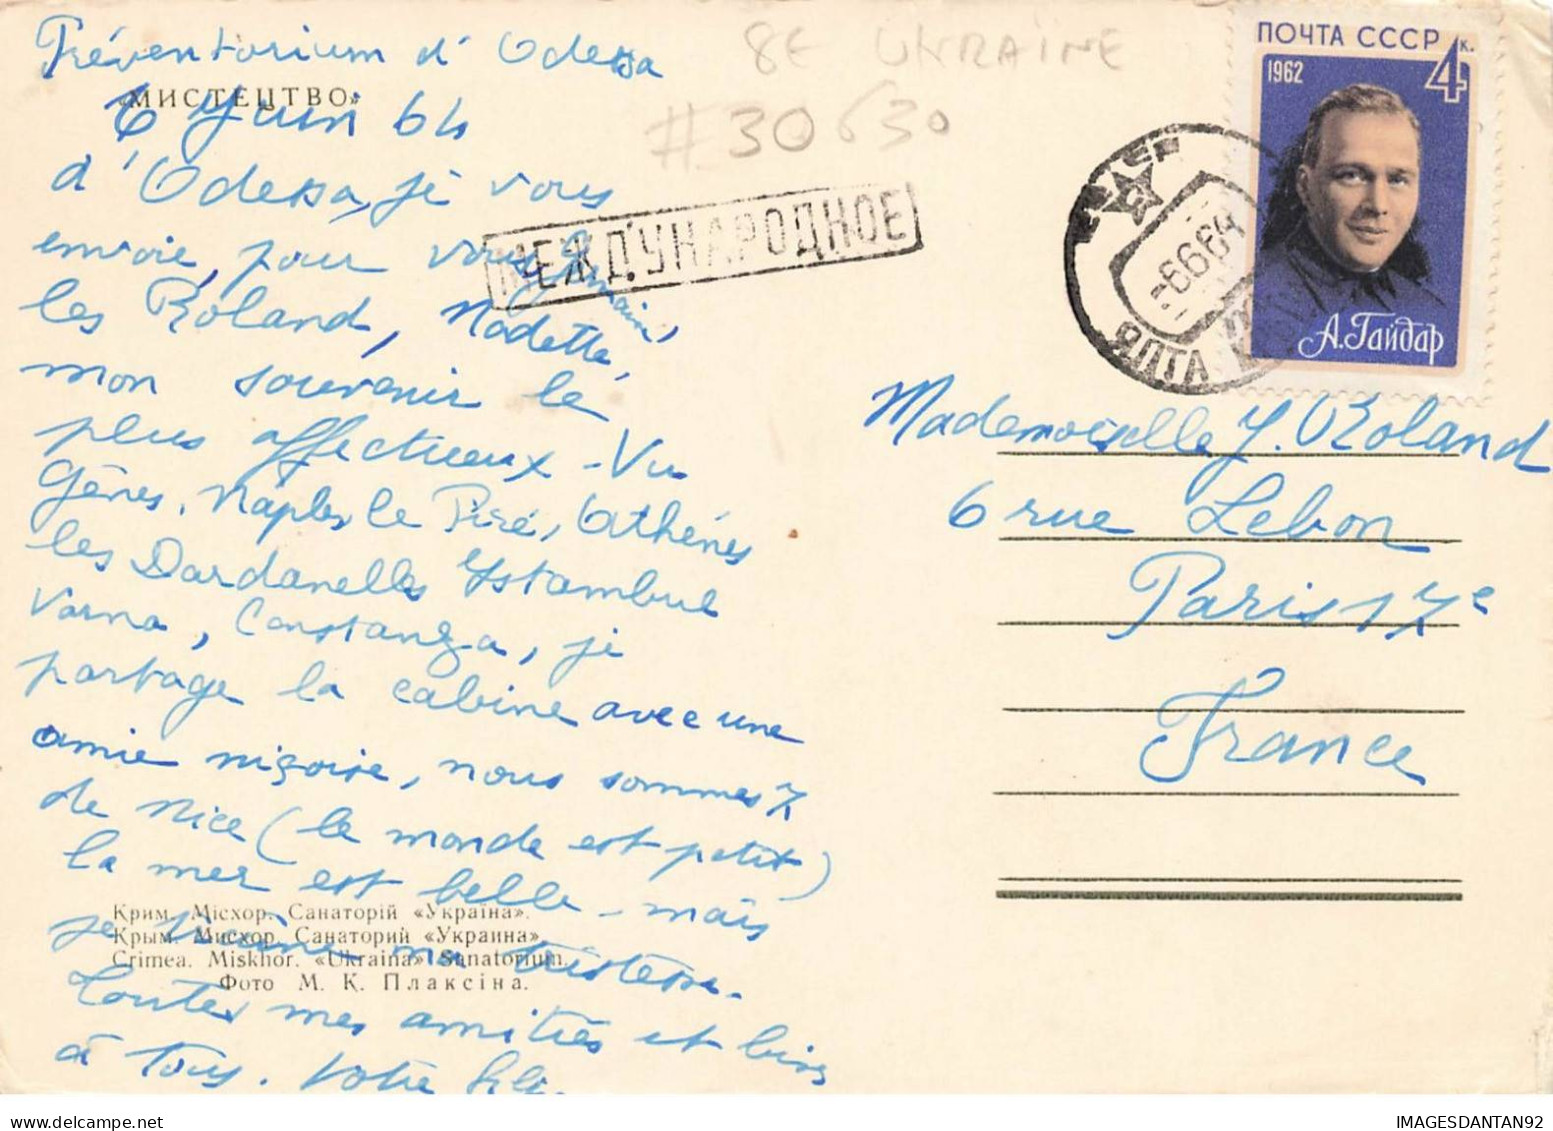 Préventorium d'Odessa
«МИСТЕЦТВО»
6 Juin 64
d'Odessa, je vous
envoie, pour vous,
les Roland, Nadette,
mon souvenir le
plus affectueux - Vu
Gênes, Naples, le Piré, Athénes
les Dardanelles Ystambul
Varna, Constanza, je
partage la cabine avec une
amie niçoise, nous sommes 7
de Nice (le monde est petit)
la mer est belle - mais
je traine ma tristesse.
Toutes mes amitiés et bises
à tous. Votre
Крим. Місхор. Санаторій «Україна».
Крым. Мисхор. Санаторий «Украина».
Crimea. Miskhor. «Ukraina» Sanatorium.
Фото М. К. Плаксіна.
8E UKRAINE
#30630
МЕЖДУНАРОДНОЕ
ПОЧТА СССР
4 к.
1962
А. Гайдар
-6664
ЯЛТА
Mademoiselle Y. Roland
6 rue Lebon
Paris 17e
France
IMAGESDANTAN92